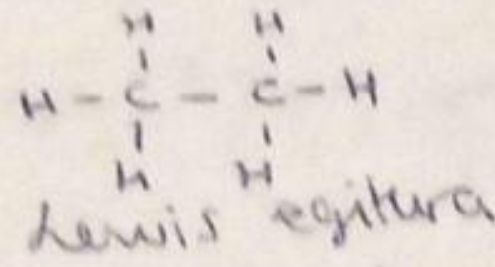 H H
H - C - C - H
H H
Lewis egitura